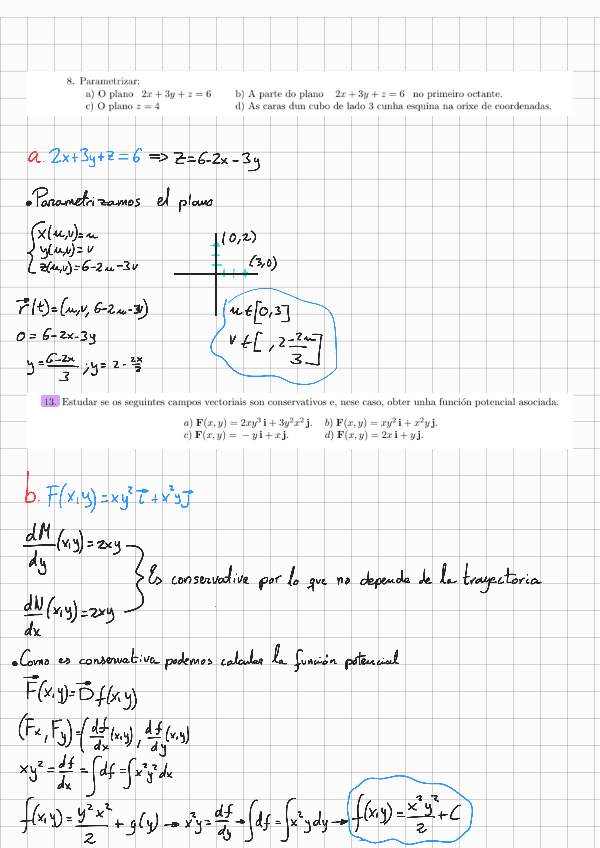 8. Parametrizar:
a) O plano 2x + 3y + z = 6 b) A parte do plano 2x + 3y + z = 6 no primeiro octante.
c) O plano z = 4 d) As caras dun cubo de lado 3 cunha esquina na orixe de coordenadas.
a. 2x+3y+z=6 => z=6-2x-3y
• Parametrizamos el plano
{ x(u,v)=u
y(u,v)=v
z(u,v)=6-2u-3v
(0,2)
(3,0)
r⃗(t)=(u,v,6-2u-3v)
0=6-2x-3y
y=(6-2x)/3 ; y=2-2x/3
u∈[0,3]
v∈[ ,2-2u/3]
13. Estudar se os seguintes campos vectoriais son conservativos e, nese caso, obter unha función potencial asociada.
a) F(x, y) = 2xy³ i + 3y²x² j. b) F(x, y) = xy² i + x²y j.
c) F(x, y) = −y i + x j. d) F(x, y) = 2x i + y j.
b. F(x,y)=xy² i⃗+x²y j⃗
dM/dy (x,y)=2xy
} Es conservativa por lo que no depende de la trayectoria
dN/dx (x,y)=2xy
• Como es conservativa podemos calcular la función potencial
F⃗(x,y)=D⃗ f(x,y)
(Fx,Fy)=(df/dx (x,y), df/dy (x,y)
xy²=df/dx=∫df=∫x²y²dx
f(x,y)=y²x²/2+g(y) → x²y=df/dy → ∫df=∫x²y dy → f(x,y)=x²y²/2+C